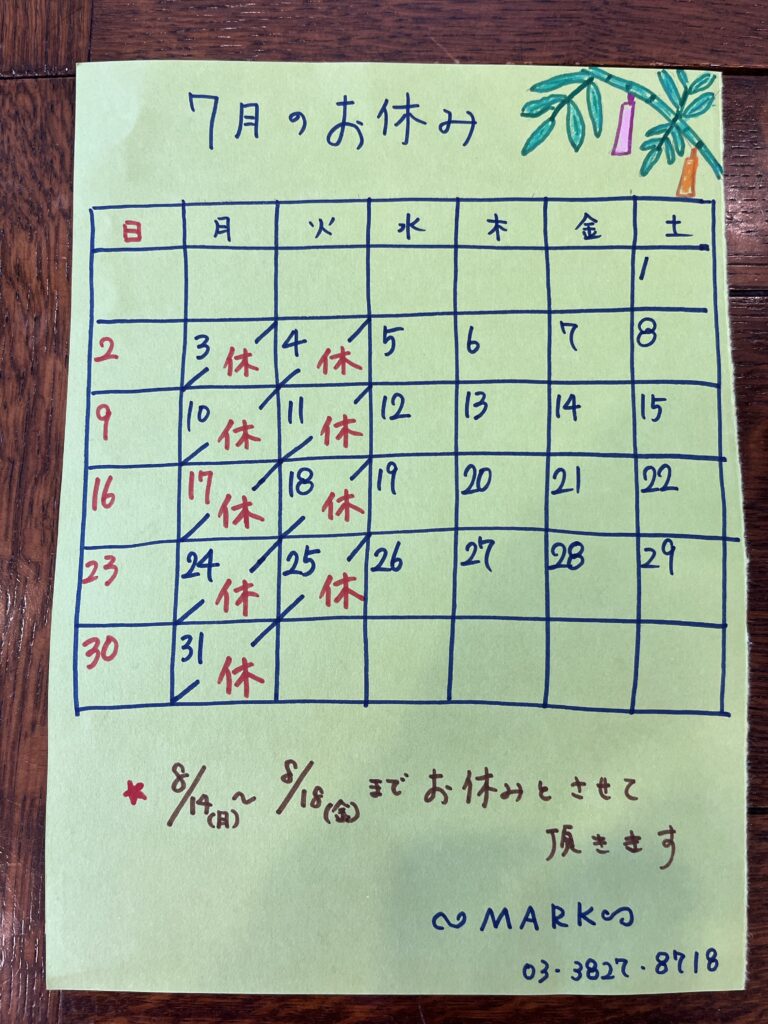 7月のお休み
日 月 火 水 木 金 土
1
2 3 休 4 休 5 6 7 8
9 10 休 11 休 12 13 14 15
16 17 休 18 休 19 20 21 22
23 24 休 25 休 26 27 28 29
30 31 休
★ 8/14(月)〜8/18(金)までお休みとさせて
頂きます
〜MARK〜
03・3827・8718